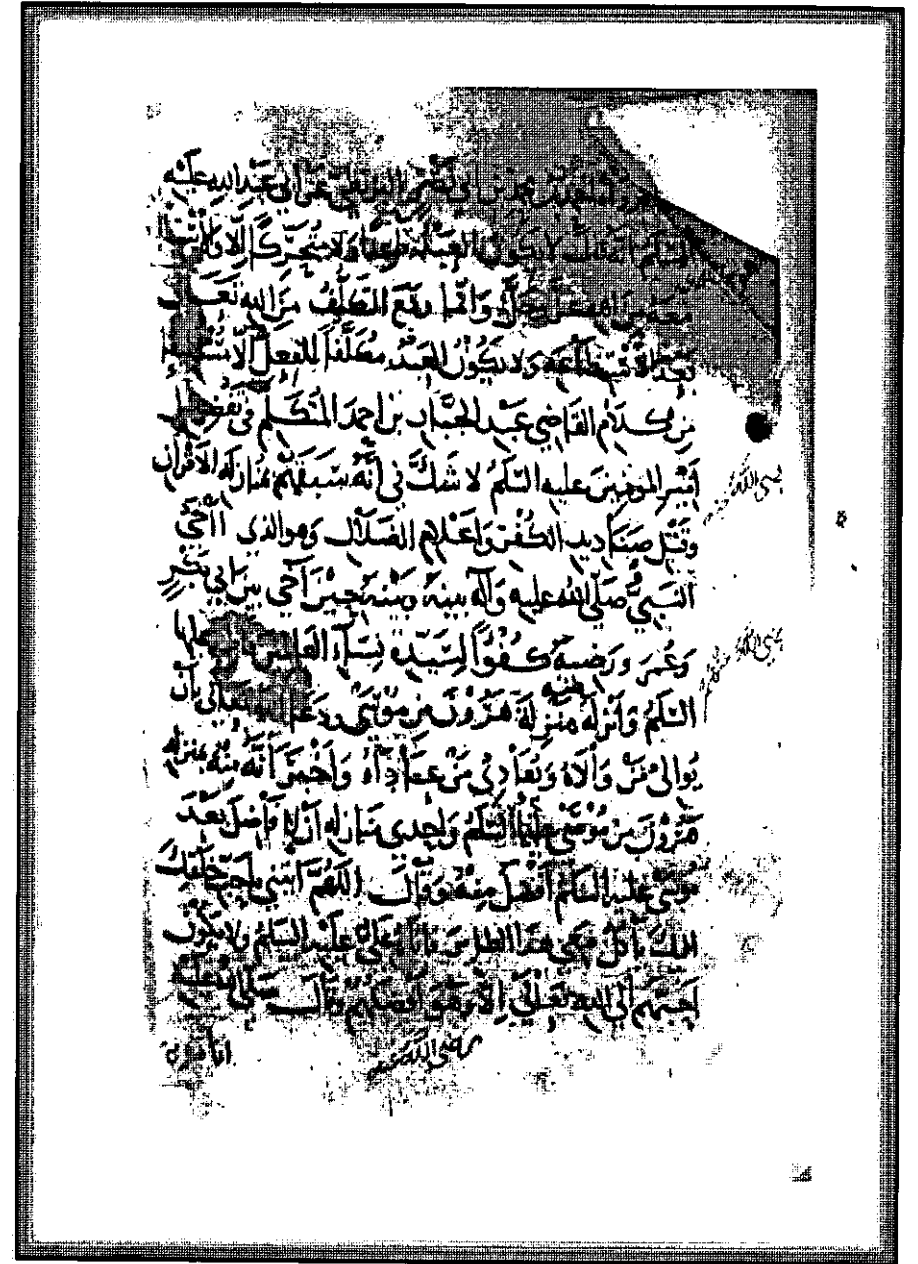 محمد بن أبي نصر البزنطي عن أبي عبد الله عليه
السلم انه قال لا يكون العبد ولا متحركا الا والاستطاعة
معه من الله عز وجل وانما وقع التكليف من الله تعالى
بعد الاستطاعة ولا يكون العبد مكلفا للفعل الا مستطيعا
من كلام القاضي عبد الجبار بن احمد المتكلم في تفضيل
امير المومنين عليه السلم لا شك في أنه سبقهم بمنازله الاقران
وقتل صناديد الكفر واعلام الضلال وهو الذي اآخى
النبي صلى الله عليه وآله بينه وبينه حين آخى بين ابي بكر
وعمر ورضيه كفوا لسيدة نسآء العالمين عليها
السلم وانزله منزلة هرون من موسى ودعا الله تعالى بأن
يوالي من والاه ويعادي من عاداه واخبر أنه منه بمنزلة
هرون من موسى عليهما السلم واحدى منازله أن لا فاضل بعد
موسى عليه السلم أفضل منه وقال اللهم ائتني باحب خلقك
اليك يأكل معي هذا الطائر فاتاه علي عليه السلم ولا يكون
احبهم الى الله تعالى الا وهو أفضلهم وقال صلى الله عليه
رضي الله عنه
رضي الله عنهم
رضي الله عنه